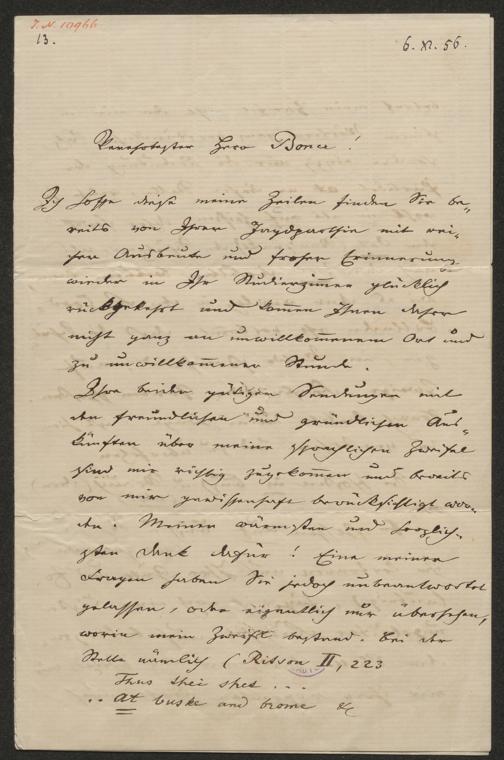 J. N. 109966
13.
6. XI. 56.
Verehrtester Herr Bonce!
Ich hoffe diese meine Zeilen finden Sie be-
reits von Ihrer Jagdparthie mit rei-
cher Ausbeute und froher Erinnerung
wieder in Ihr Studierzimmer glücklich
rückgekehrt und kommen Ihnen daher
nicht ganz an unwillkommenem Ort und
zu unwillkommener Stunde.
Ihre beiden gütigen Sendungen mit
den freundlichen und gründlichen Aus-
künften über meine sprachlichen Zweifel
sind mir richtig zugekommen und bereits
von mir gewissenhaft berücksichtigt wor-
den. Meinen wärmsten und herzlich-
sten Dank dafür! Eine meiner
Fragen haben Sie jedoch unbeantwortet
gelassen, oder eigentlich nur übersehen,
worin mein Zweifel bestand. Bei der
Stelle nämlich (Ritson II, 223
Thus shei shet ...
.. At buske and brome &c